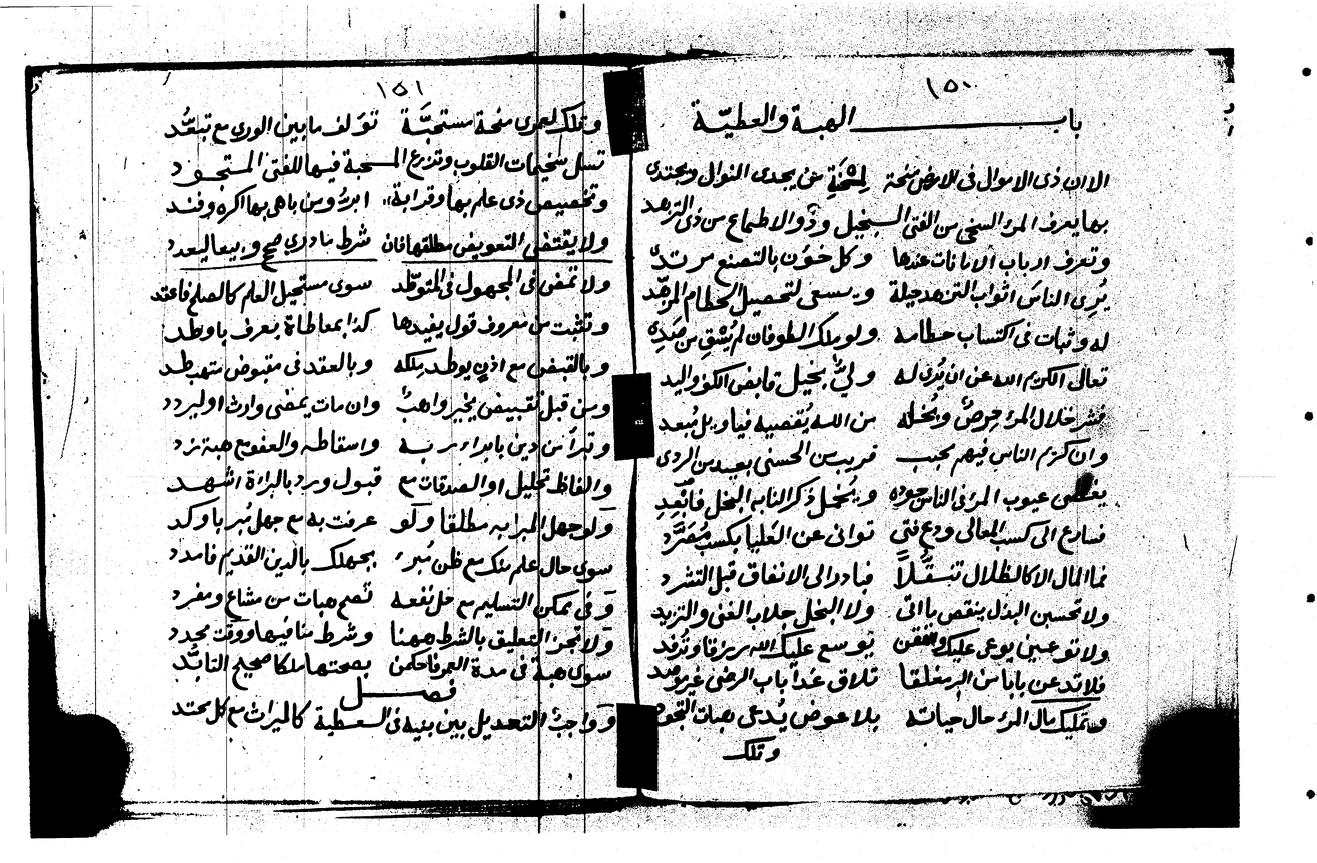 ١٥٠
باب الهبة والعطيّة
الا ان ذى الاموال فى الارض منحة لمنحة من يجدى النوال ويجتدى
بها يعرف المرء السخى من الفتى البخيل وذو الاطماع من ذى التزهد
وتعرف ارباب الامانات عندها وكل خؤن بالتصنع مرتدى
يُرِى الناسَ اثواب التزهد حيلة ويسعى لتحصيل الحطام
له وثبات فى اكتساب حطامه ولو ملك الطوفان لم يُسْقِ من صَدِى
تعالى الكريم الله عن ان يُرى له ولىٌّ بخيل قابض الكف واليد
فشر خلال المرء حِرصٌ وبُخله من الله يُقصيه فيا وبل مُبعد
وان كريم الناس فيهم محبب قريب من الحسنى بعيد من الردى
يغطى عيوب المرء فى الناس جوده ويُخمل ذكر النابه البخل فابعِدِ
فسارع الى كسب المعالى ودع فتى توانى عن العَليا بكسب مُصَرَّد
فما المال الا كالظلال تنقُّلاً فبادر الى الانفاق قبل التشرد
ولا تحسبن البذل ينقص ما اتى ولا البخل جلاب الغنى والتزيد
ولا توعين يوعى عليك وانفقن يوسع عليك الله رزقا وترفد
فلا تدعن بابا من البر مغلقا تلاق غداً باب الرضى غير موصد
وتمليك مال المرء حال حياته بلا عوض يُدعى هبات
وتلك
١٥١
وتلك لعمرى منحة مستحبَّة تؤلف ما بين الورى مع تبعُّد
تسل سخيمات القلوب وتزرع المحبة فيها للفتى
وتخصيص ذى علم بها وقرابة ابرُّ ومن باهى بها اكره وفند
ولا يقتضى التعويض مطلقها فان شرط ما درى صح وبيعا ليعدد
ولا تمض فى المجهول فى المتوطّد سوى مستحيل العلم كالصلح فاعتد
وتثبت من معروف قول يفيدها كذا بمعاطاة بعرف باوطد
وبالقبض مع اذنٍ يوطد ملكه وبالعقد فى مقبوض متهب طد
ومن قبل تقبيض يخير واهبٌ وان مات يمضى وارث او ليردد
وتبرأ من دين بابراء ربه واسقاطه والعفو مع هبة تزد
والفاظ تحليل او الصدقات مع قبول ورد بالبراءة اشهد
ولو جهل المبرا به مطلقا ولو عرفت به مع جهل مُبر باوكد
سوى حال علم منك مع ظن مُبرء بجهلك بالدين القديم فاسدد
وفى ممكن التسليم مع حل نفعه تصح هبات من مشاع ومفرد
ولا تجز التعليق بالشرط ههنا وشرط منافيها ووقت محدد
سوى هبة فى مدة العمر فاحكمن بصحتها ملكا صحيح التابُّد
فصل
وواجبٌ التعديل بين بنيه فى العطية كالميراث مع كل محتد